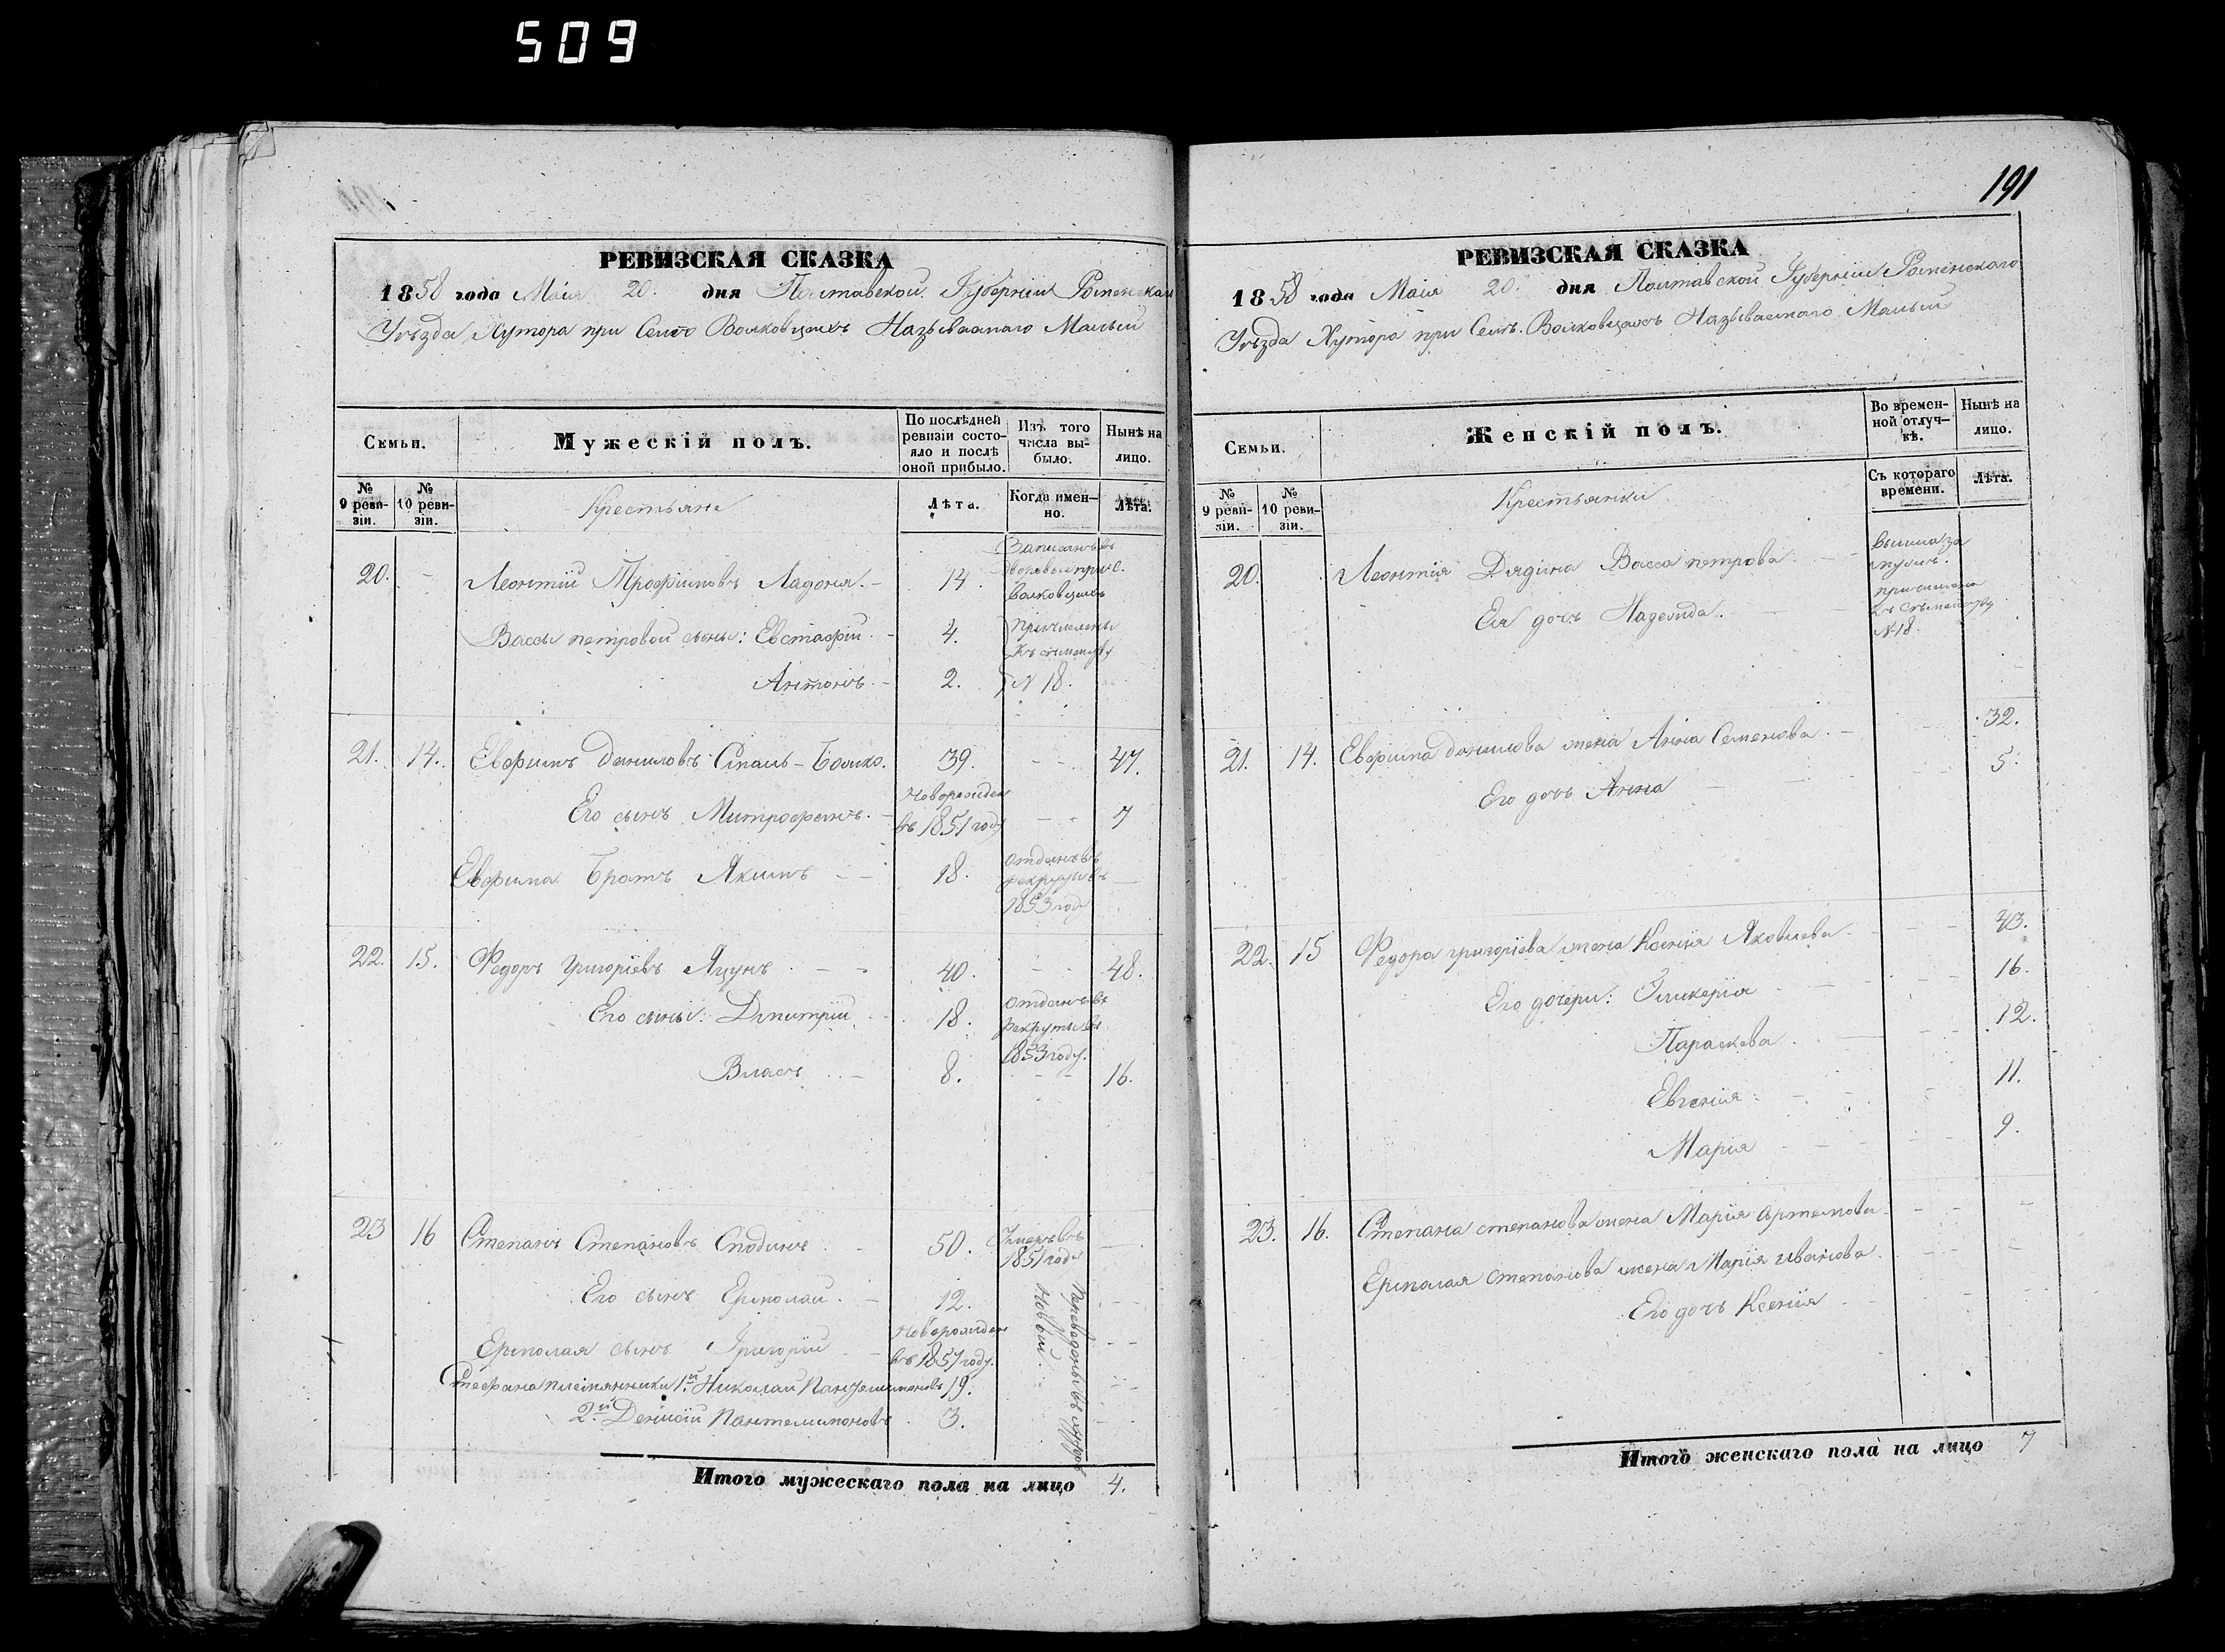 509
РЕВИЗСКАЯ СКАЗКА
1858 года Маія 20. дня Полтавской Губерніи Роменскаго
Уѣзда Хутора при Селѣ Волковцахъ Называемаго Малый
Семьи.
Мужескій полъ.
По послѣдней ревизіи состояло и послѣ оной прибыло.
Изъ того числа выбыло.
Нынѣ на лицо.
№ 9 ревизіи.
№ 10 ревизіи.
Крестьяне
Лѣта.
Когда именно.
Лѣта.
20. - Леонтій Трофимовъ Ладоня. - 14. Записанъ въ дворовые при с. Волковцахъ
Вассы петровой сыны: Евстафій - 4. Причислены къ семейству
Антонъ. - 2. N 18.
21. 14. Евфимъ Даниловъ Сталь-Бошко. 39. - - 47.
Его сынъ Митрофанъ. - Новорожден въ 1851 году - - 7
Евфима Братъ Якимъ - - 18. отданъ въ рекруты въ 1853 году -
22. 15. Федоръ григоріевъ Яцунъ - - 40. - - 48.
Его сыны: Дмитрій 18. отданъ въ рекруты въ 1853 году.
Власъ - 8. - - 16.
23 16 Степанъ Степановъ Сподинъ - 50. Умеръ въ 1851 году -
Его сынъ Ермолай. - 12. - -
Ермолая сынъ Григорій - Новорожден въ 1857 году. - -
Стефана племянники 1й Николай Пантелимоновъ 19. - -
2й Денисій Пантелимоновъ 3. -
Переведены въ хуторъ Новый.
Итого мужескаго пола на лицо 4.
191
РЕВИЗСКАЯ СКАЗКА
1858 года Маія 20. дня Полтавской Губерніи Роменскаго
Уѣзда Хутора при Селѣ. Волковцахъ Называемаго Малый
Семьи.
Женскій полъ.
Во временной отлучкѣ.
Нынѣ на лицо.
№ 9 ревизіи.
№ 10 ревизіи.
Крестьянки
Съ котораго времени.
Лѣта.
20. Леонтія Дядина Васса петрова - - вышла за мужъ.
Ея дочь Надежда. - причислена къ семейству N 18.
21. 14. Евфима данилова жена Анна Семенова. - 32.
Его дочь Анна - 5.
22. 15 Федора григоріева жена Ксенія Яковлева - 43.
Его дочери: Гликерія - 16.
Параскева. - 12.
Евгенія - 11.
Марія - 9.
23. 16. Степана степанова жена Марія артемова - -
Ермолая Степанова жена Марія иванова. - -
Его дочь Ксенія - -
Итого женскаго пола на лицо 7